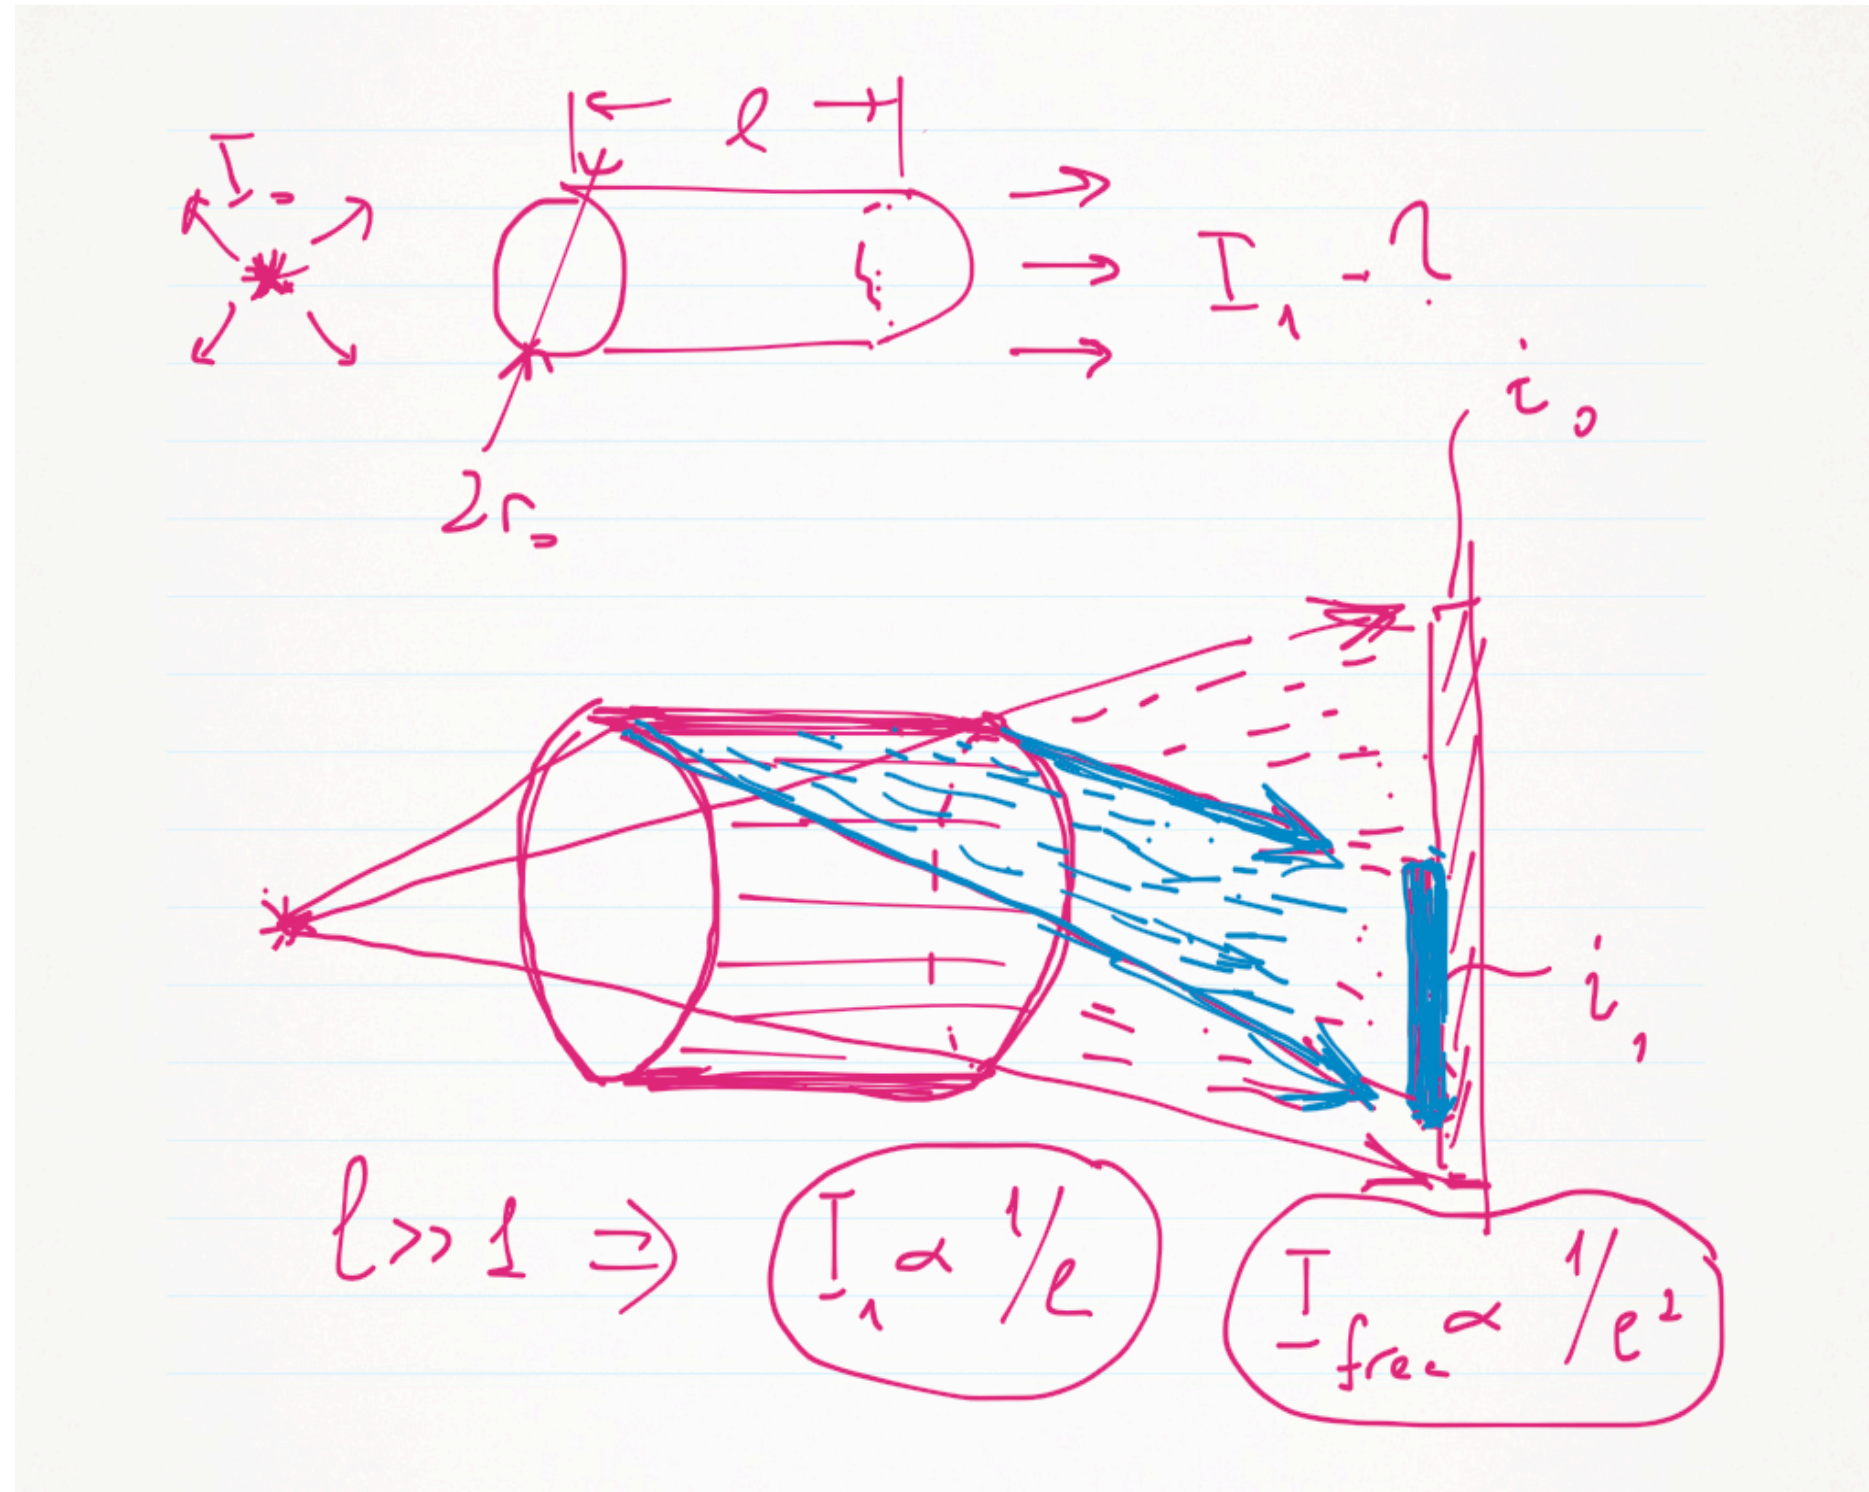 l
I₀
I₁ - ?
2r₀
i₀
i₁
l >> 1 ⇒ I₁ ∝ 1/l
I free ∝ 1/l²